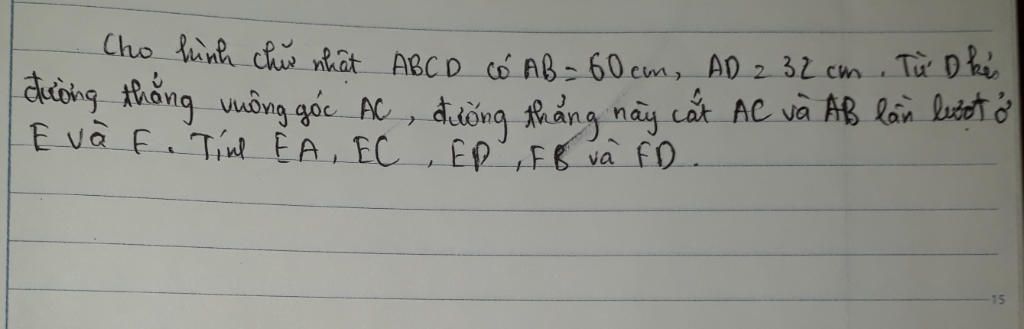 Cho hình chữ nhật ABCD có AB = 60 cm, AD = 32 cm. Từ D kẻ
đường thẳng vuông góc AC, đường thẳng này cắt AC và AB lần lượt ở
E và F. Tính EA, EC, ED, FB và FD.
15